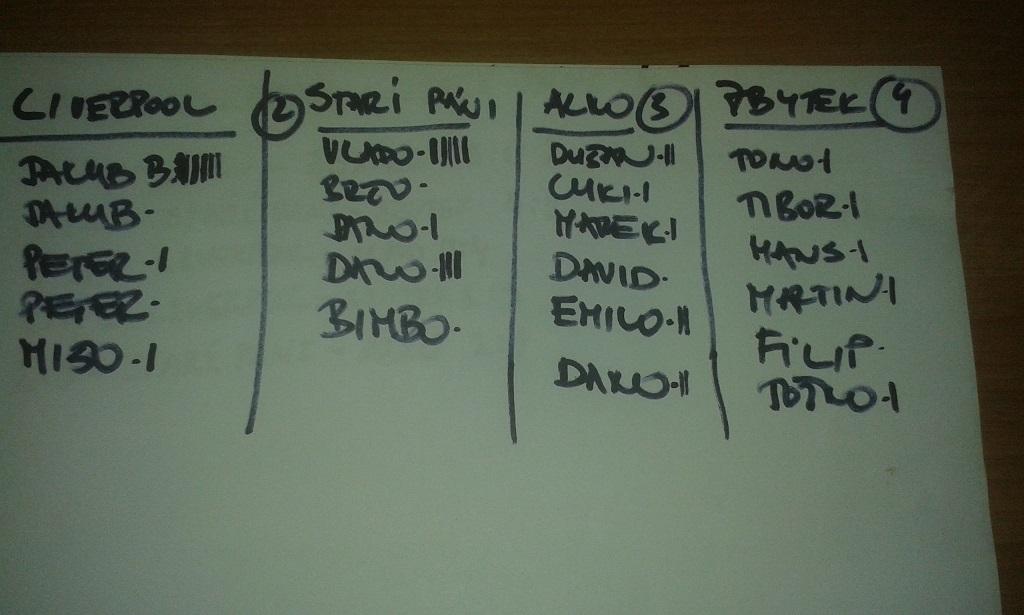 LIVERPOOL
JAKUB B.
JAKUB-
PETER-I
PETER-
MIŠO-I
② STARÍ PÁNI
VLADO-IIIII
BRZO-
JANO-I
DANO-III
BIMBO-
ALKO ③
DUŠAN-II
CUKI-I
MAREK-I
DAVID-
EMILO-II
DANO-II
ZBYTEK ④
TONO-I
TIBOR-I
HANS-I
MARTIN-I
FILIP-